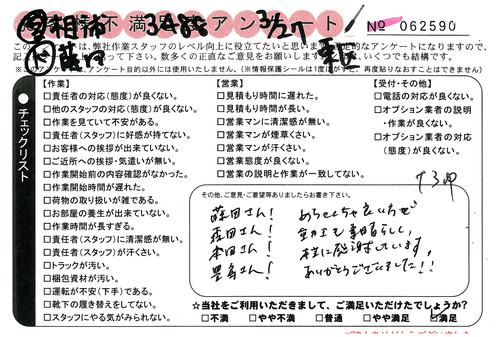 不満足アンケート
No 062590
このアンケートは、弊社作業スタッフのレベル向上に役立てたいと思います。
数多くの正直なご意見をお願いします。いくつでも結構です。
(※このアンケートは、アンケート目的以外には使用いたしません。(※情報保護シールは1度しかはがせません。
チェックリスト
【作業】
□責任者の対応(態度)が良くない。
□他のスタッフの対応(態度)が良くない。
□作業を見ていて不安がある。
□責任者(スタッフ)に好感が持てない。
□お客様への挨拶が出来ていない。
□ご近所への挨拶・気遣いが無い。
□作業開始前の内容確認がなかった。
□作業開始時間が遅れた。
□荷物の取り扱いが雑である。
□お部屋の養生が出来ていない。
□作業時間が長すぎる。
□責任者(スタッフ)に清潔感が無い。
□責任者(スタッフ)が汗くさい。
□トラックが汚い。
□梱包資材が汚い。
□運転が不安(下手)である。
□靴下の履き替えをしてない。
□スタッフにやる気がみられない。
【営業】
□見積もり時間に遅れた。
□見積もり時間が長い。
□営業マンに清潔感が無い。
□営業マンが煙草くさい。
□営業マンが汗くさい。
□営業態度が良くない。
□営業の説明と作業が一致してない。
【受付・その他】
□電話の対応が良くない。
□オプション業者の説明
・作業が良くない。
□オプション業者の対応
(態度)が良くない。
その他、ご意見・ご要望等ありましたらお書き下さい。
藤田さん!
森田さん!
本田さん!
めちゃくちゃ良い方で
本当に感謝しています。
ありがとうございました!!
☆当社をご利用いただきまして、ご満足いただけたでしょうか?
□不満 □やや不満 □普通 □やや満足 □満足